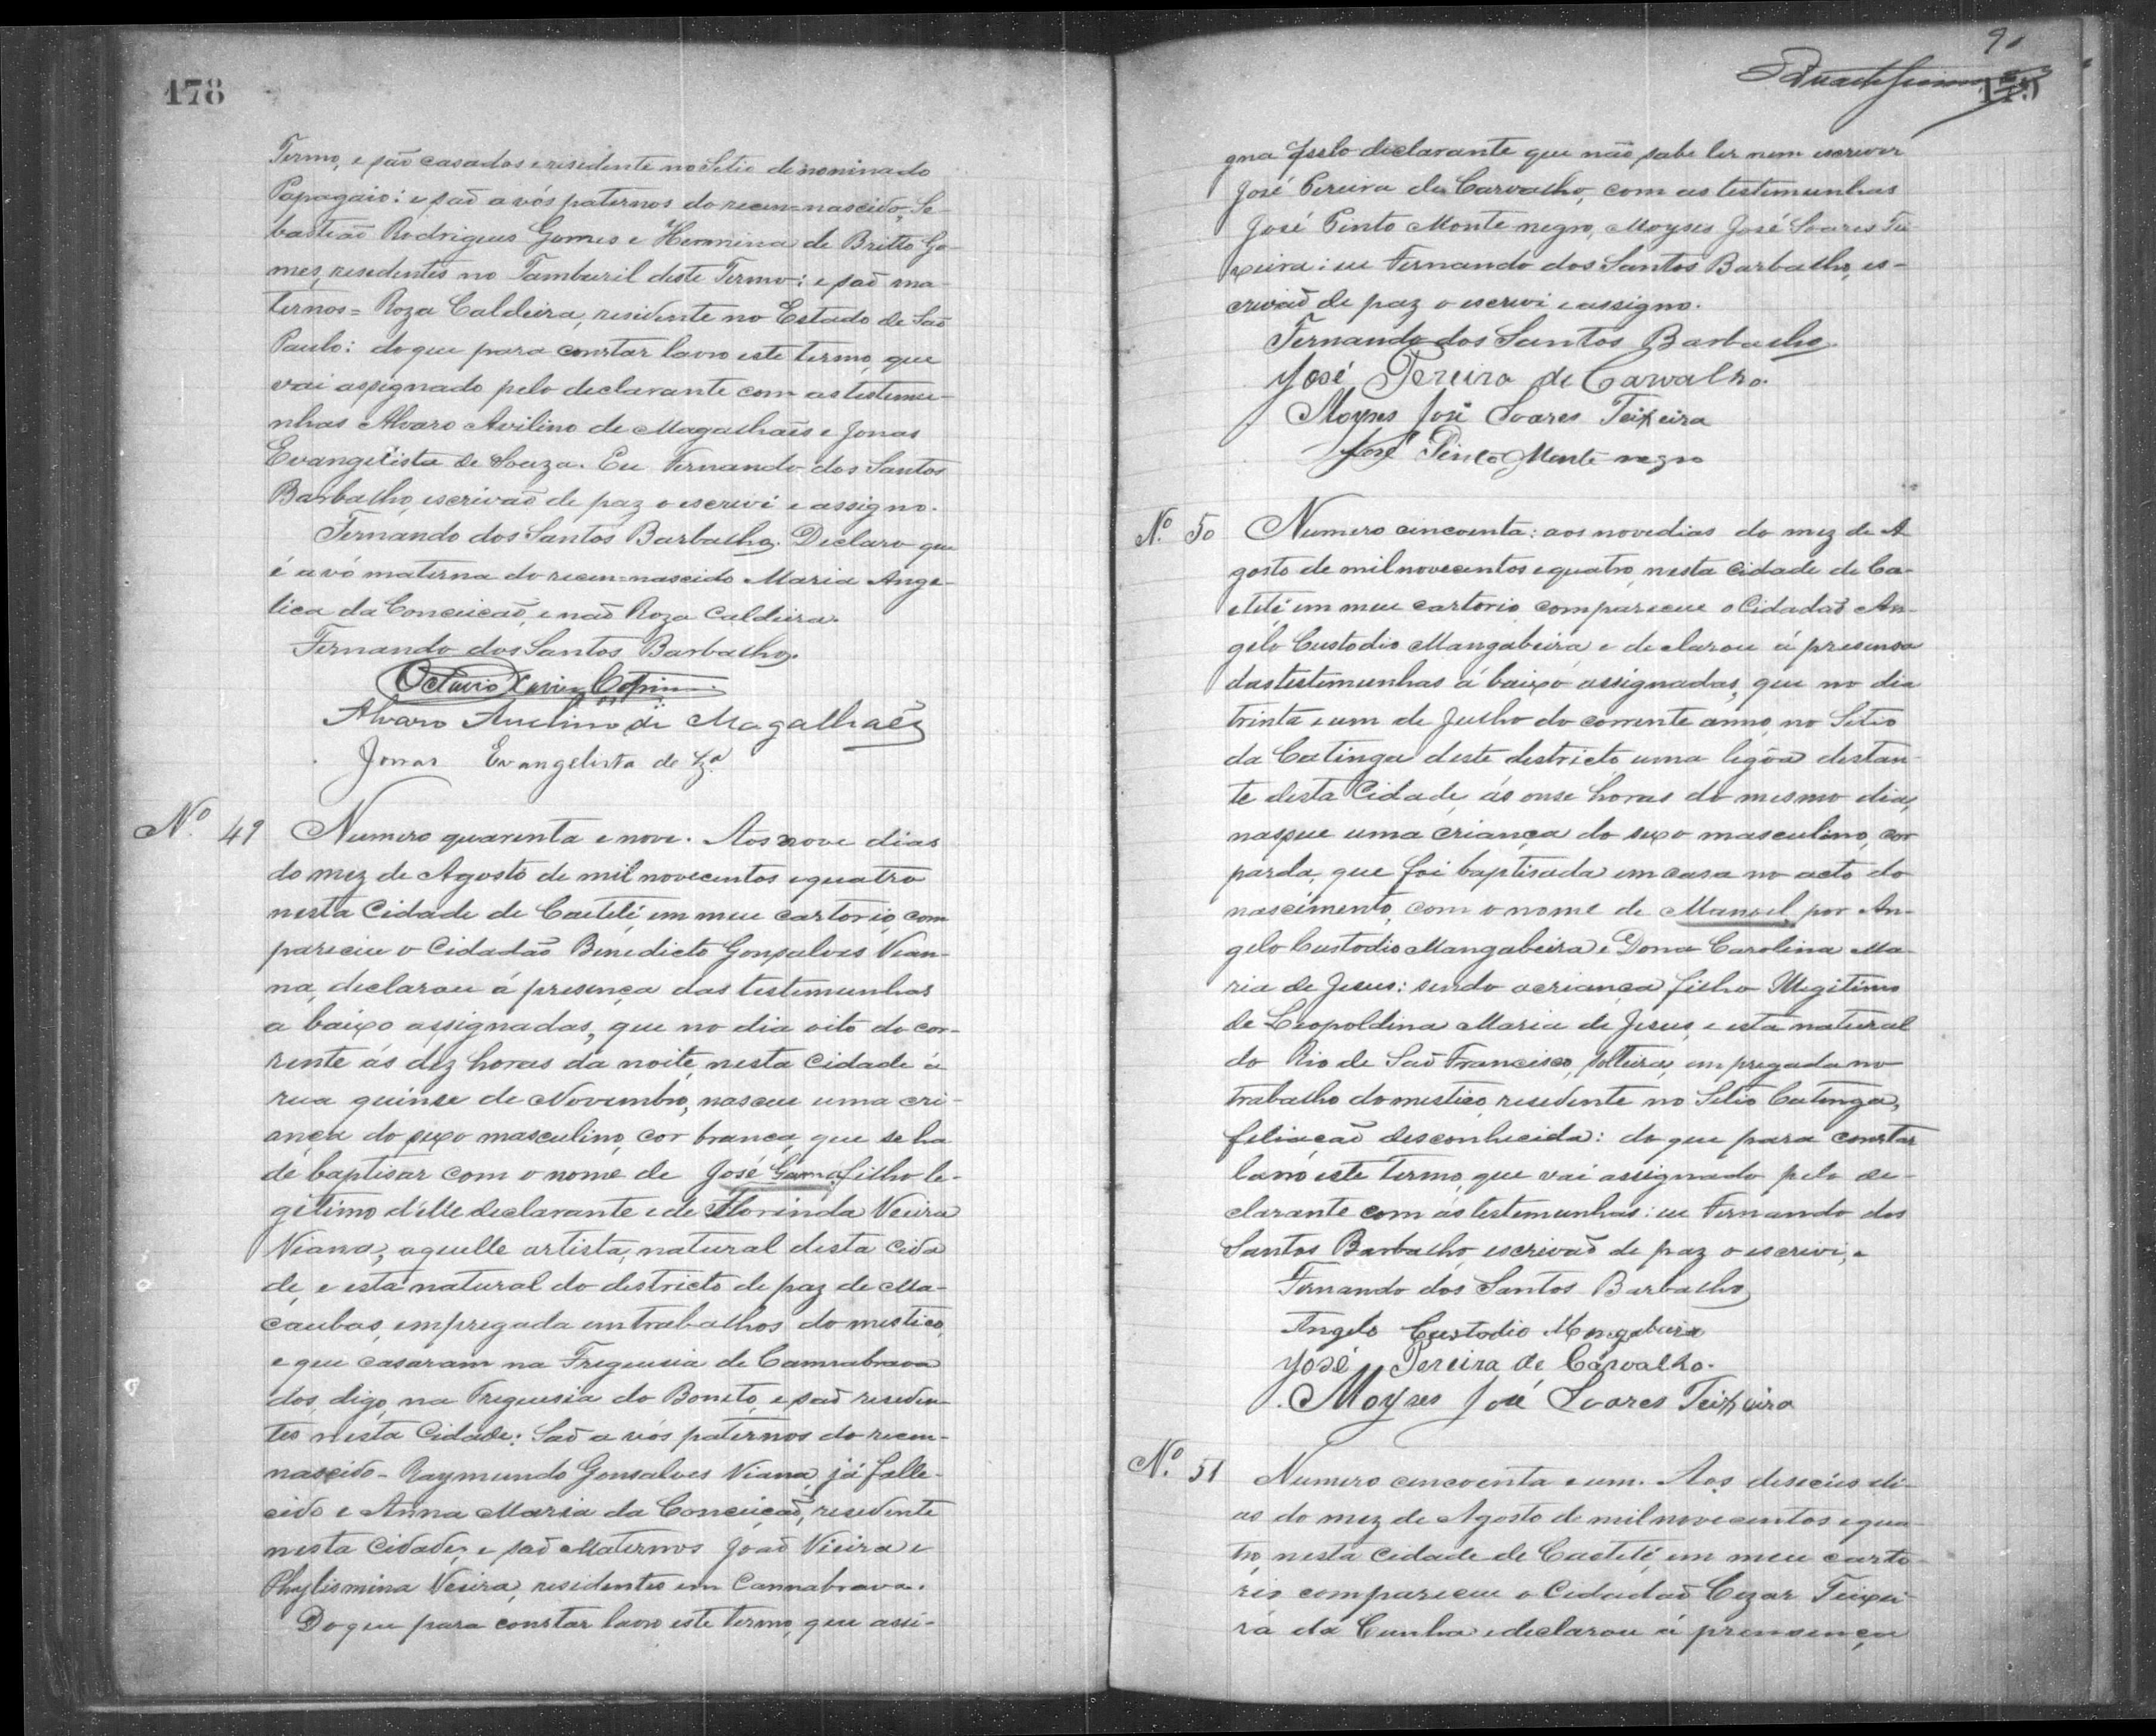 178
Termo, e são casados e residente no Sitio denominado
Papagaio: e saõ avós paternos do recem=nascido, Se-
bastiaõ Rodrigues Gomes e Hermina de Britto Go-
mes, residentes no Tamburil deste Termo: e saõ ma-
ternos= Roza Caldeira, residente no Estado de Saõ
Paulo: do que para constar lavro este termo, que
vai assignado pelo declarante com as testemu-
nhas Alvaro Avilino de Magalhaẽs e Jonas
Evangelista de Souza. Eu Fernando dos Santos
Barbalho, escrivaõ de paz o escrevi e assigno.
Fernando dos Santos Barbalho. Declaro que
é avó materna do recem=nascido Maria Ange-
lica da Conceicaõ, e naõ Roza Caldeira.
Fernando dos Santos Barbalho.
Octavio Xavier
Alvaro Avelino de Magalhaẽs
Jonas Evangelista de Sza
No. 49 Numero quarenta e nove. Aos nove dias
do mez de Agosto de mil novecentos e quatro
nesta Cidade de Caetité, em meu cartorio, com
pareceu o Cidadão Benedicto Gonsalves Vian-
na, declarou á presença das testemunhas
a baixo assignadas, que no dia oito do cor-
rente ás dez horas da noite, nesta Cidade á
rua quinse de Novembro, nasceu uma cri-
ança do sexo masculino, cor branca, que se ha
de baptisar com o nome de José Gama, filho le-
gitimo d'elle declarante e de Florinda Vieira
Viana, aquelle artista, natural desta Cida
de, e esta natural do districto de paz de Ma-
caubas, empregada em trabalhos domestico,
e que casaram na Freguesia de Cannabrava
dos, digo, na Freguesia do Bonito, e saõ residen-
tes nesta Cidade: Saõ avós paternos do recem-
nascido - Raymundo Gonsalves Viana, já falle-
cido e Anna Maria da Conceicaõ, residente
nesta Cidade, e saõ Maternos Joaõ Vieira e
Phylismina Vieira, residentes em Cannabrava.
Do que para constar lavro este termo, que assi-
9
179
gna pelo declarante que não sabe ler nem escrever
José Pereira de Carvalho, com as testemunhas
José Pinto Monte negro, Moyses José Soares Tei
xeira: eu Fernando dos Santos Barbalho, es-
crivaõ de paz o escrevi e assigno.
Fernando dos Santos Barbalho.
José Pereira de Carvalho.
Moyses José Soares Teixeira
José Pinto Monte negro
No. 50 Numero cincoenta: aos nove dias do mez de A
gosto de mil novecentos e quatro, nesta Cidade de Ca-
etité em meu cartorio, compareceu o Cidadaõ An-
gelo Custodio Mangabeira e declarou á presensa
das testemunhas á baixo assignadas, que no dia
trinta e um de Julho do corrente anno, no Sitio
da Catinga deste destricto uma legõa destan-
te desta Cidade, ás onse horas do mesmo dia,
nasceu uma criança do sexo masculino, cor
parda, que foi baptisada em casa no acto do
nascimento, com o nome de Manoel, por An-
gelo Custodio Mangabeira e Dona Carolina Ma-
ria de Jesus: sendo a criança filho Illegitimo
de Leopoldina Maria de Jesus, e esta natural
do Rio de Saõ Francisco, solteira, empregada no
trabalho domestico, residente no Sitio Catinga,
filiacaõ desconhecida: do que para constar
lavro este termo, que vai assignado pelo de-
clarante com ás testemunhas: eu Fernando dos
Santos Barbalho, escrivaõ de paz o escrevi, e
Fernando dos Santos Barbalho
Angelo Custodio Mangabeira
José Pereira de Carvalho.
Moyses José Soares Teixeira
No. 51 Numero cincoenta e um. Aos deseseis di-
as do mez de Agosto de mil novecentos e qua-
tro, nesta Cidade de Caetité em meu carto-
rio compareceu o Cidadaõ Cezar Teixei-
ra da Cunha e declarou á prensença